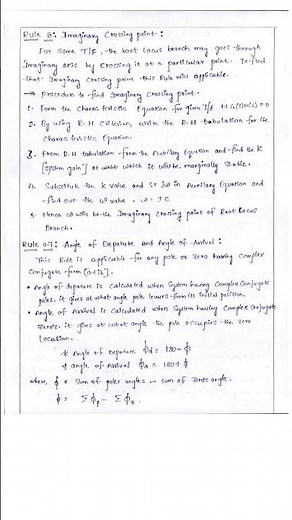 Rule 6: Imaginary Crossing point :
For Some T/F, the Root Locus branch may goes through
Imaginary axis by Crossing it at a particular point. To find
that Imaginary Crossing point this Rule will applicable.
→ Procedure to find Imaginary Crossing point.
1. Form the Characteristic Equation for given T/F 1+G(s)H(s) = 0
2. By using R-H Criterion, write the R-H tabulation for the
Characteristic Equation.
3. From R-H tabulation form the Auxilary Equation and find the K
[system gain] at which it will be marginally stable.
4. Substitute the K value and in Auxilary Equation and
find out the ω value.
5. Hence ω will be the Imaginary Crossing point of Root Locus
Branch.
Rule 07: Angle of Depature and Angle of Arrival :
This Rule is applicable for any pole or zero having Complex
Conjugate form
• Angle of departure is Calculated when System having Complex Conjugate
poles. it gives at what angle pole leaves from its initial position.
• Angle of Arrival is Calculated when System having Complex Conjugate
Zeros. it gives at what angle the pole occupies the zero
Location.
* Angle of Depature ϕd = 180 - ϕ
* angle of Arrival ϕa = 180 + ϕ
where, ϕ = Sum of pole angles - sum of Zeros angle.
ϕ = Σϕp - Σϕz.